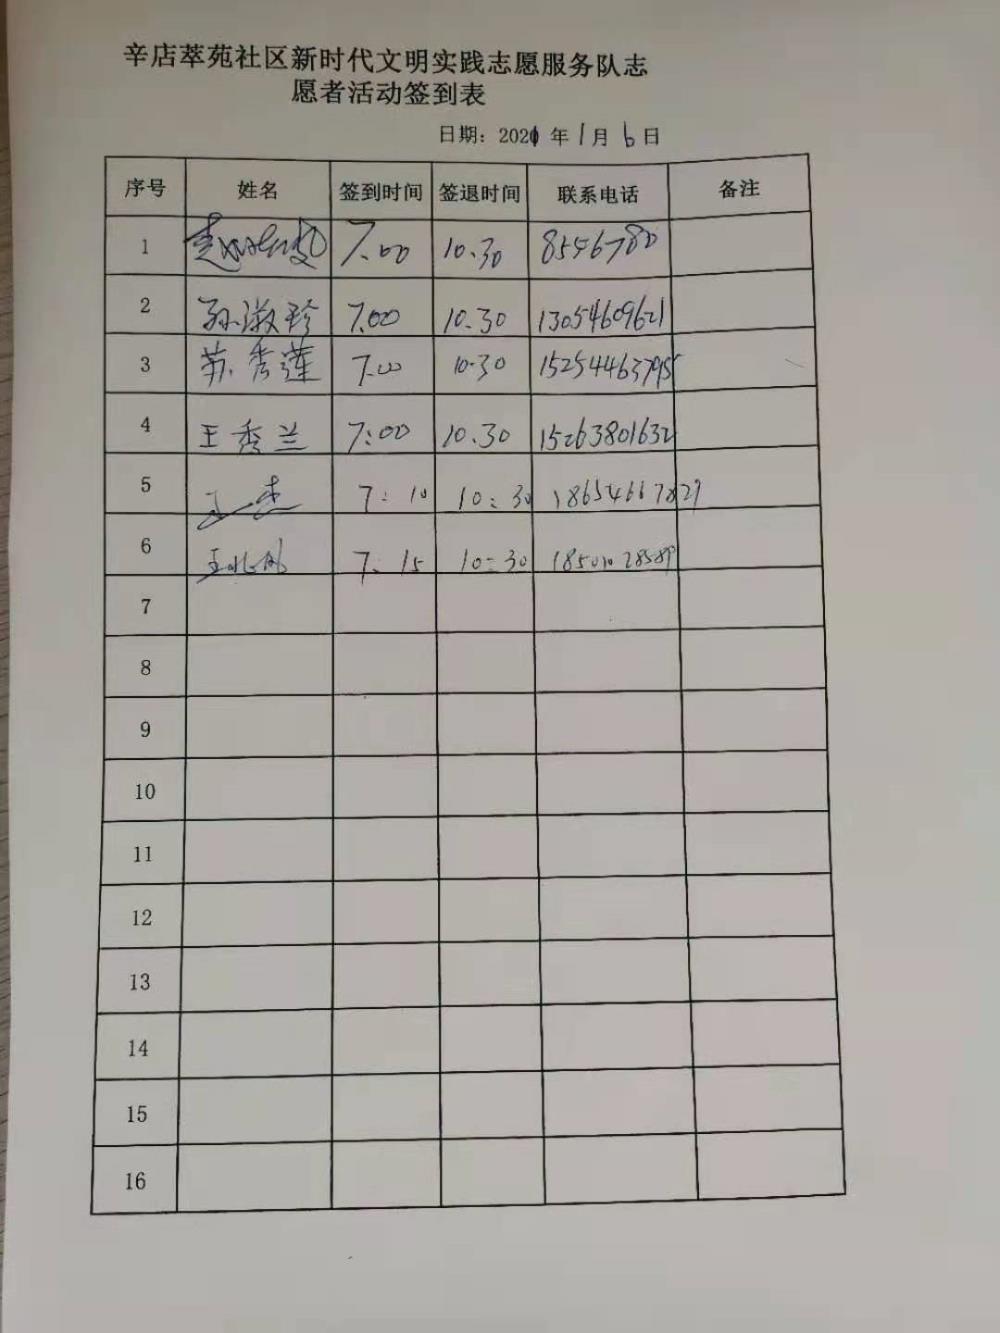 辛店萃苑社区新时代文明实践志愿服务队志
愿者活动签到表
日期：2021年1月6日
序号 姓名 签到时间 签退时间 联系电话 备注
1 7.00 10.30 8546780
2 孙淑珍 7.00 10.30 13054609621
3 苏秀莲 7.00 10.30 15254463795
4 王秀兰 7:00 10.30 15263801632
5 王杰 7:10 10:30 18654667829
6 7:15 10:30
7
8
9
10
11
12
13
14
15
16